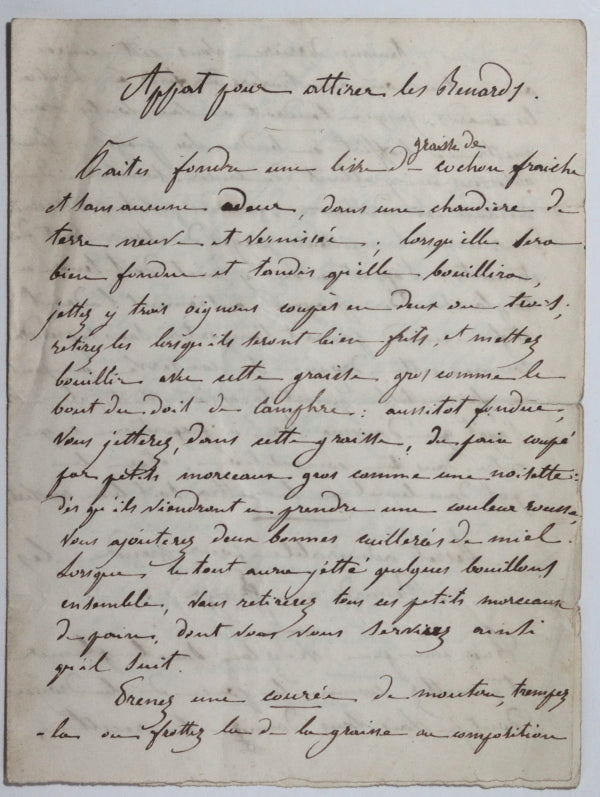 Appat pour attirer les Renards.
graisse de
Faites fondre une livre de cochon fraiche
et sans aucune odeur, dans une chaudiere de
terre neuve et vernissée ; lorsqu'elle sera
bien fondue et tandis qu'elle bouillira,
jettez y trois oignons coupés en deux ou trois ;
retirez les lorsqu'ils seront bien frits, et mettez
bouillir avec cette graisse gros comme le
bout du doit de Camphre : aussitot fondue,
vous jetterez, dans cette graisse, du pain coupé
par petits morceaux gros comme une noisette :
dès qu'ils viendront a prendre une couleur rousse,
vous ajouterez deux bonnes cuillerées de miel.
Lorsque le tout aura jétté quelques bouillons
ensemble, vous retirerez tous ces petits morceaux
de pain, dont vous vous servirez ainsi
qu'il suit.
Prenez une courée de mouton, trempez
-la ou frottez la de la graisse ou composition